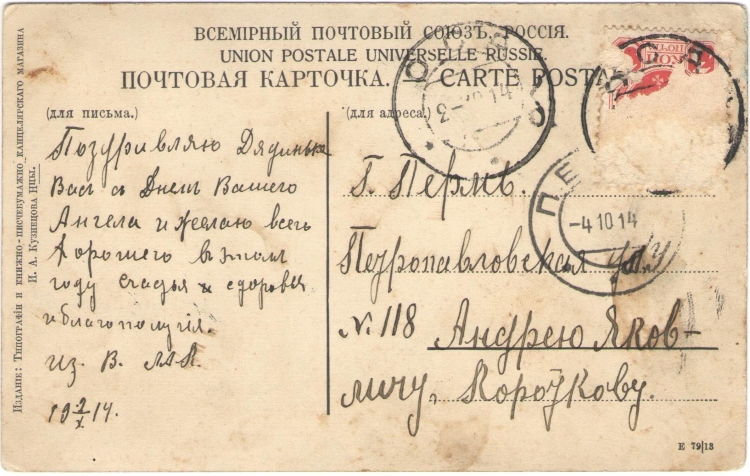 ВСЕМІРНЫЙ ПОЧТОВЫЙ СОЮЗЪ. РОССІЯ.
UNION POSTALE UNIVERSELLE RUSSIE.
ПОЧТОВАЯ КАРТОЧКА. CARTE POSTA
(ДЛЯ ПИСЬМА.)
Поздравляю Дядинька
Вас с Днем Вашего
Ангела и желаю всего
хорошего в этом
году счастья и здоровья
и благополучія.
из. В.
19 2/X 14.
(ДЛЯ АДРЕСА.)
Г. Пермь.
Петропавловская ул.
№ 118 Андрею Яков-
личу, Короткову.
2- 10 14
ПЕ
-4 10 14
Изданіе: Типографіи и книжно-писчебумажно канцелярскаго магазина
И. А. Кузнецова Нцы.
Е 79|13